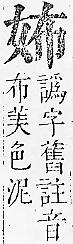 姊
譌字舊註音
布美色泥